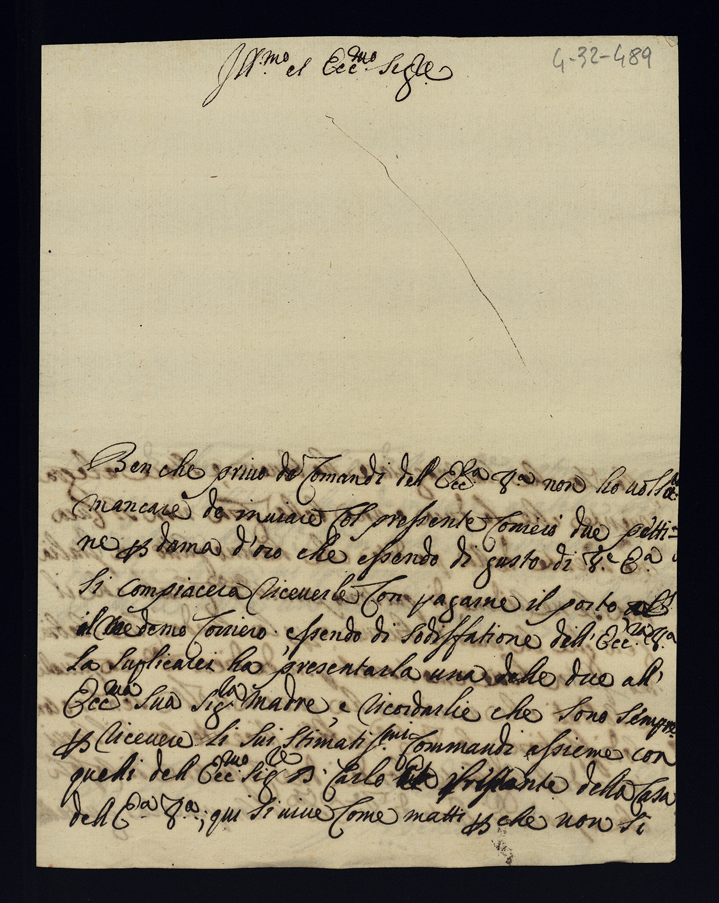 4-32-489
Ill.mo et Ecc.mo Sig.re
Ben che privo de Comandi dell Ecc.a V.a non ho uolsuto
mancare de inuiare Col pressente Corriero due petti=
ne per dama d'oro che essendo di gusto di V.a E.a
si compiacera riceuerle Con pagarne il porto
il medemo Corriero essendo di sodisfatione dell' Ecc.za V.a
la suplicarei ha presentarla una delle due all'
Ecc.ma sua Sig.ra Madre, e ricordarlie che sono sempre
per riceuere li sui stimatissimi Commandi assieme con
quelli dell Ecc.mo Sig.re D. Carlo della Casa
dell E.a V.a, qui si uiue Come matti per che non si